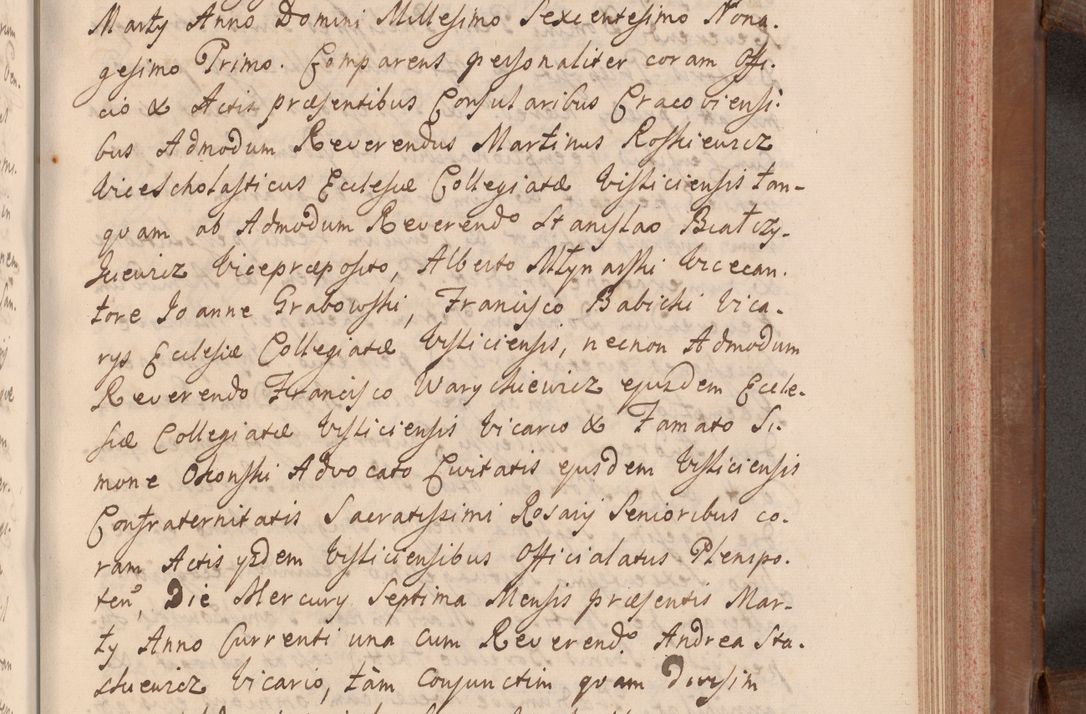 Martÿ Anno Domini Millesimo Sexcentesimo Nona.
gesimo Primo. Comparens personaliter coram Offi.
cio & Actis præsentibus Consularibus Cracoviensi.
bus Admodum Reverendus Martinus Roskiewicz
Vicescholasticus Ecclesiæ Collegiatæ Visliciensis tan-
quam ab Admodum Reverendo Stanislao Białczy-
kiewicz Vicepræposito, Alberto Młynarski Vicecan.
tore Joanne Grabowski, Francisco Babicki Vica.
rys Ecclesiæ Collegiatæ Visliciensis, necnon Admodum
Reverendo Francisco Warychiewicz ejusdem Eccle.
siæ Collegiatæ Visliciensis Vicario & Famato Si.
mone Okonski Advocato Civitatis ejusdem Visliciensis
Confraternitatis Sacratissimi Rosaÿ Senioribus co.
ram Actis ysdem Visliciensibus Officialatus Plenipo.
ten, Die Mercurÿ Septima Mensis præsentis Mar-
tÿ Anno Currenti una cum Reverendo. Andrea Sta.
chiewicz Vicario, tam conjunctim quam Divisim